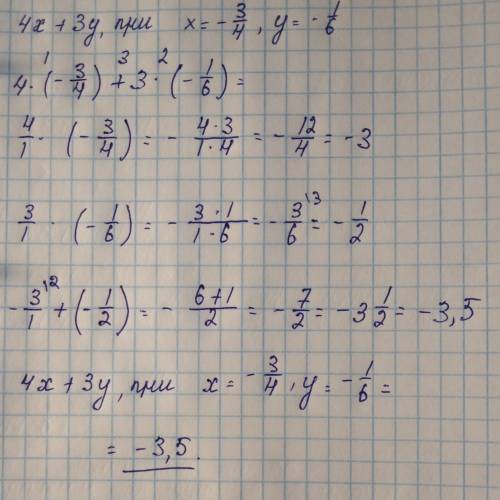 4x + 3y, при x = -3/4, y = -1/6
1 3 2
4 · (-3/4) + 3 · (-1/6) =
4/1 · (-3/4) = - 4·3/1·4 = - 12/4 = -3
3/1 · (-1/6) = - 3·1/1·6 = - 3/6 ^(13) = - 1/2
- 3/1 ^(12) + (-1/2) = - 6+1/2 = - 7/2 = -3 1/2 = -3,5
4x + 3y, при x = -3/4, y = -1/6 =
= -3,5.